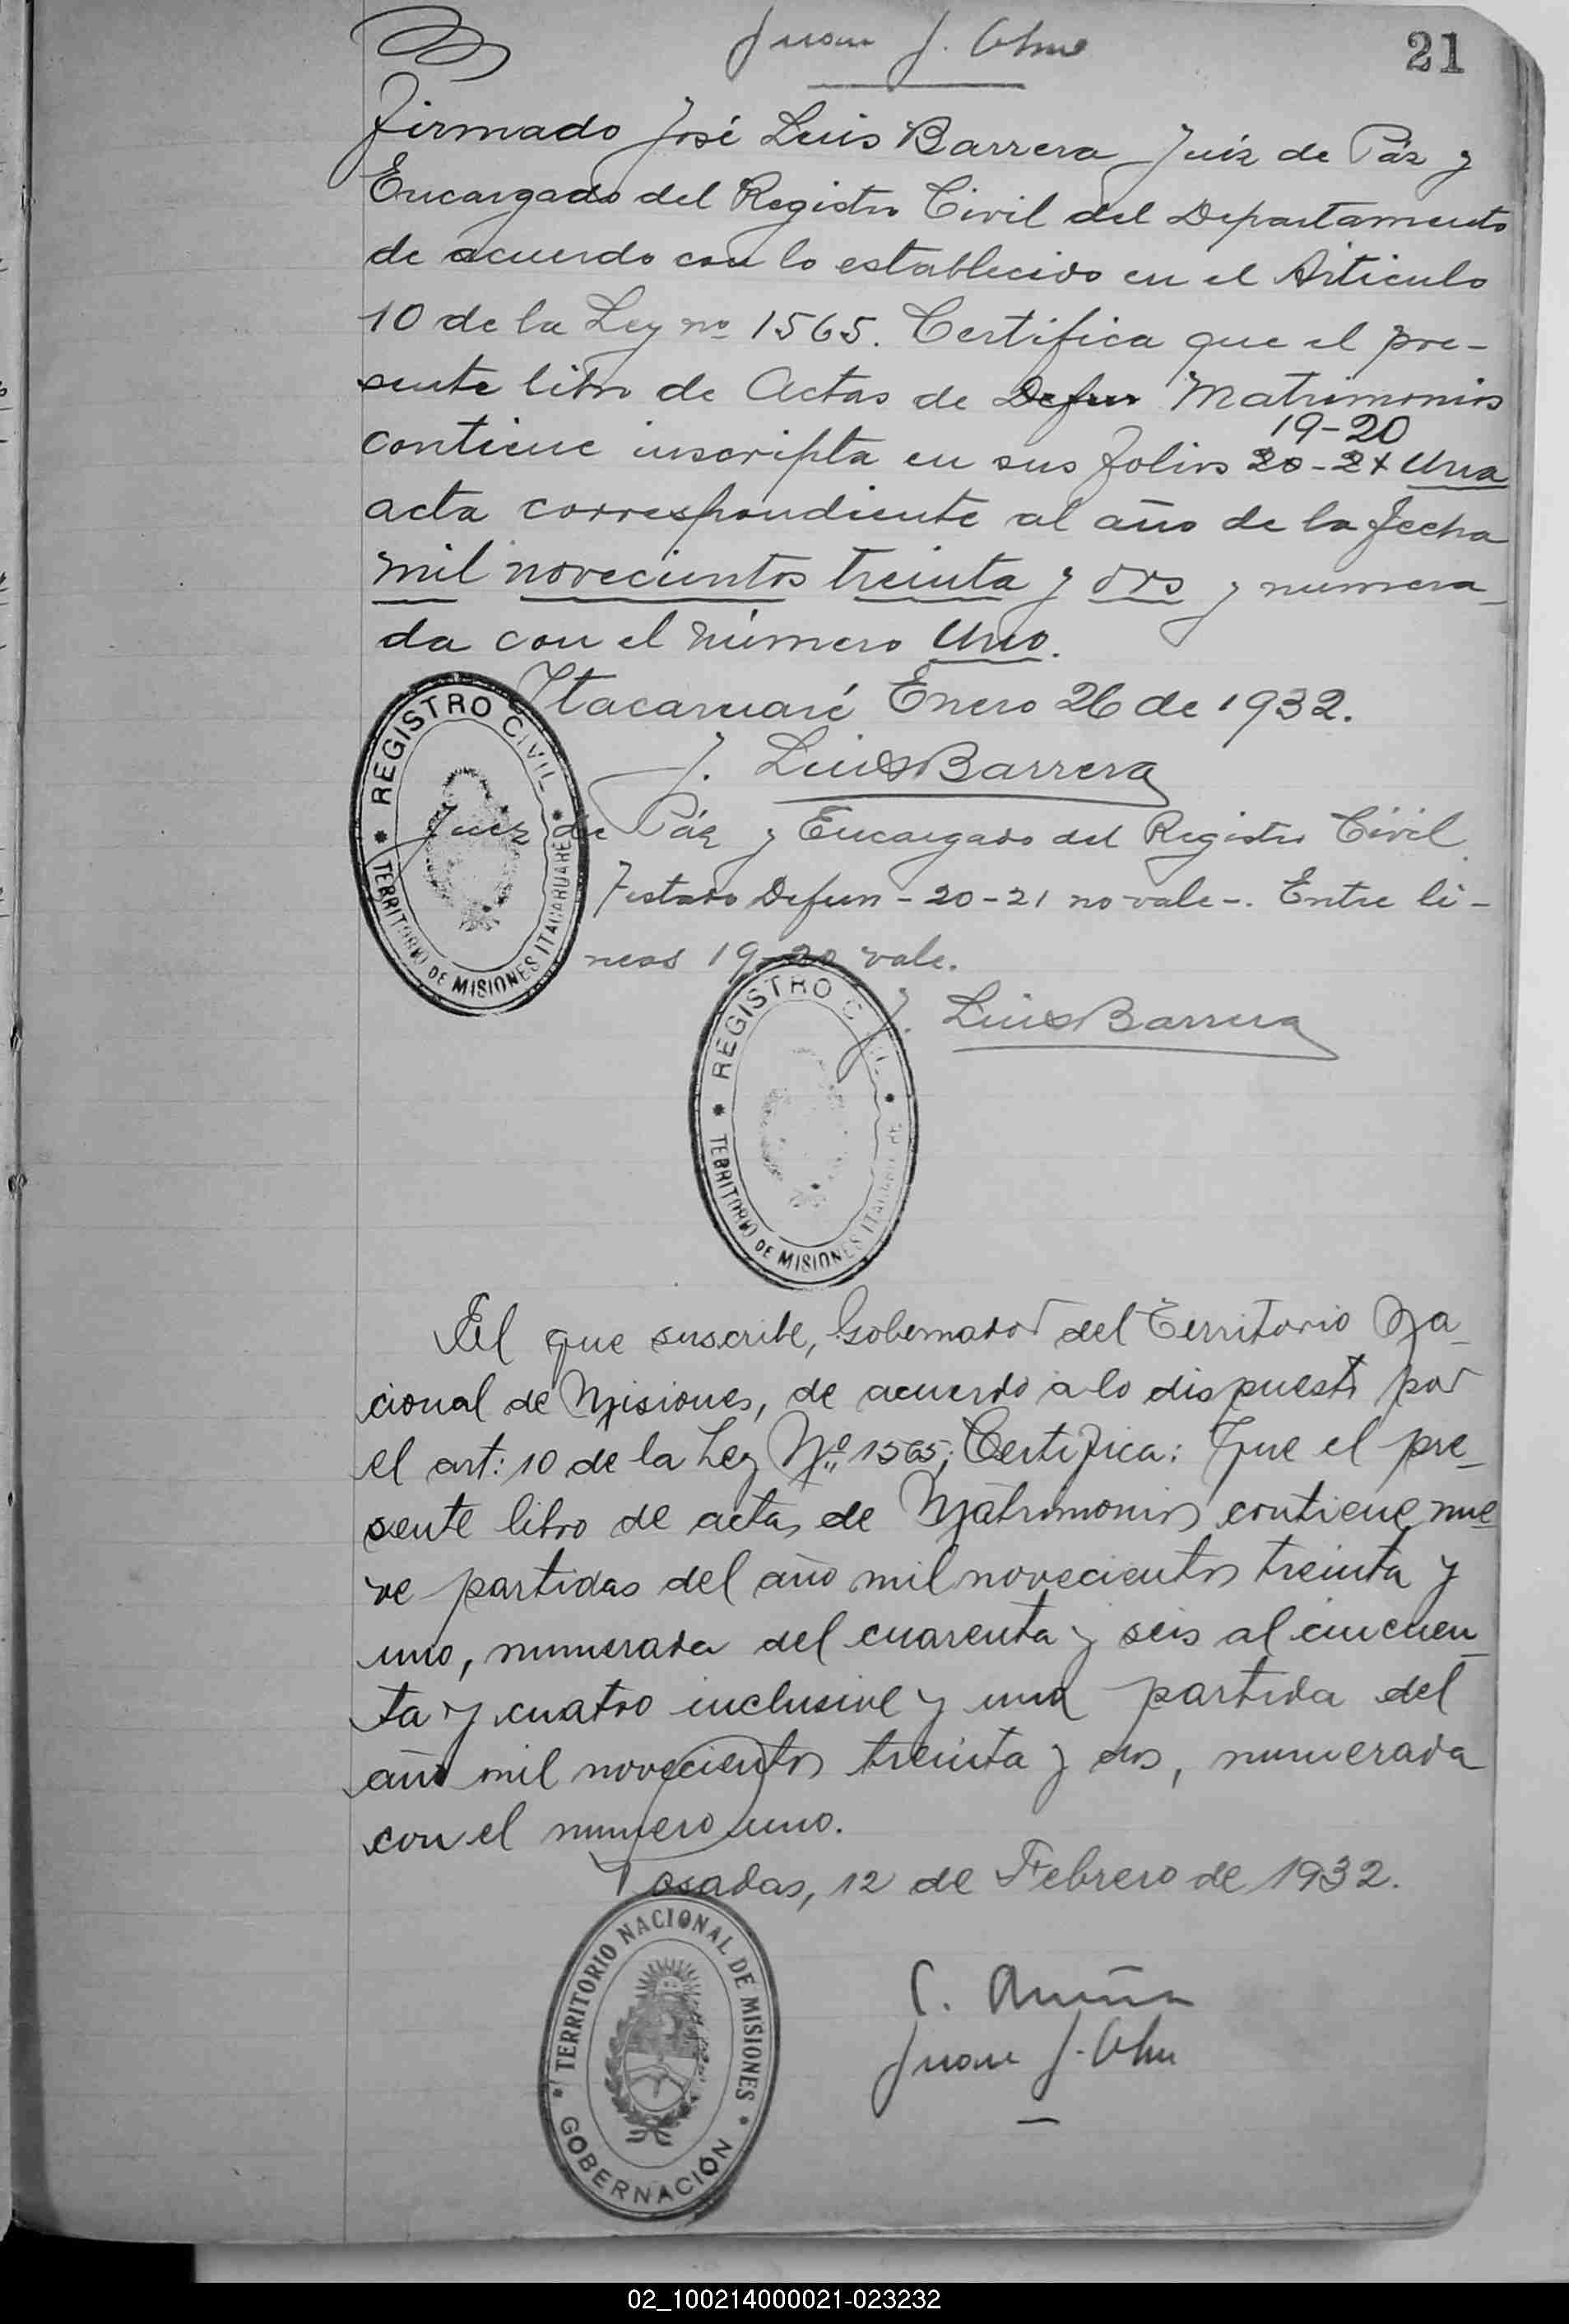 21
Juan J.
firmado José Luis Barrera Juéz de Páz y
Encargado del Registro Civil del Departamento
de acuerdo con lo establecido en el Articulo
10 de la Ley nº 1565. Certifica que el pre-
sente libro de Actas de Defun Matrimonios
19-20
contiene inscripta en sus folios 20-21 Una
acta correspondiente al año de la fecha
mil novecientos treinta y dos y numera-
da con el número Uno.
Itacaruaré Enero 26 de 1932.
J. Luis Barrera
Juez de Páz y Encargado del Registro Civil
Testado Defun - 20-21 no vale-. Entre li-
neas 19-20 vale.
J. Luis Barrera
REGISTRO CIVIL
TERRITORIO DE MISIONES ITACARUARE
REGISTRO CIVIL
TERRITORIO DE MISIONES
El que suscribe, Gobernador del Territorio Na-
cional de Misiones, de acuerdo a lo dispuesto por
el art: 10 de la Ley Nº 1565; Certifica: Que el pre-
sente libro de actas de Matrimonios contiene nue-
ve partidas del año mil novecientos treinta y
uno, numerada del cuarenta y seis al cincuen-
ta y cuatro inclusive y una partida del
año mil novecientos treinta y dos, numerada
con el numero uno.
Posadas, 12 de Febrero de 1932.
TERRITORIO NACIONAL DE MISIONES
GOBERNACIÓN
C. Acuña
Juan J.
02_100214000021-023232